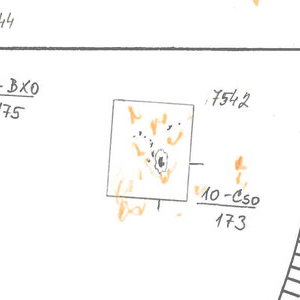 44
- BXO
175
7542
10 - Cso
173